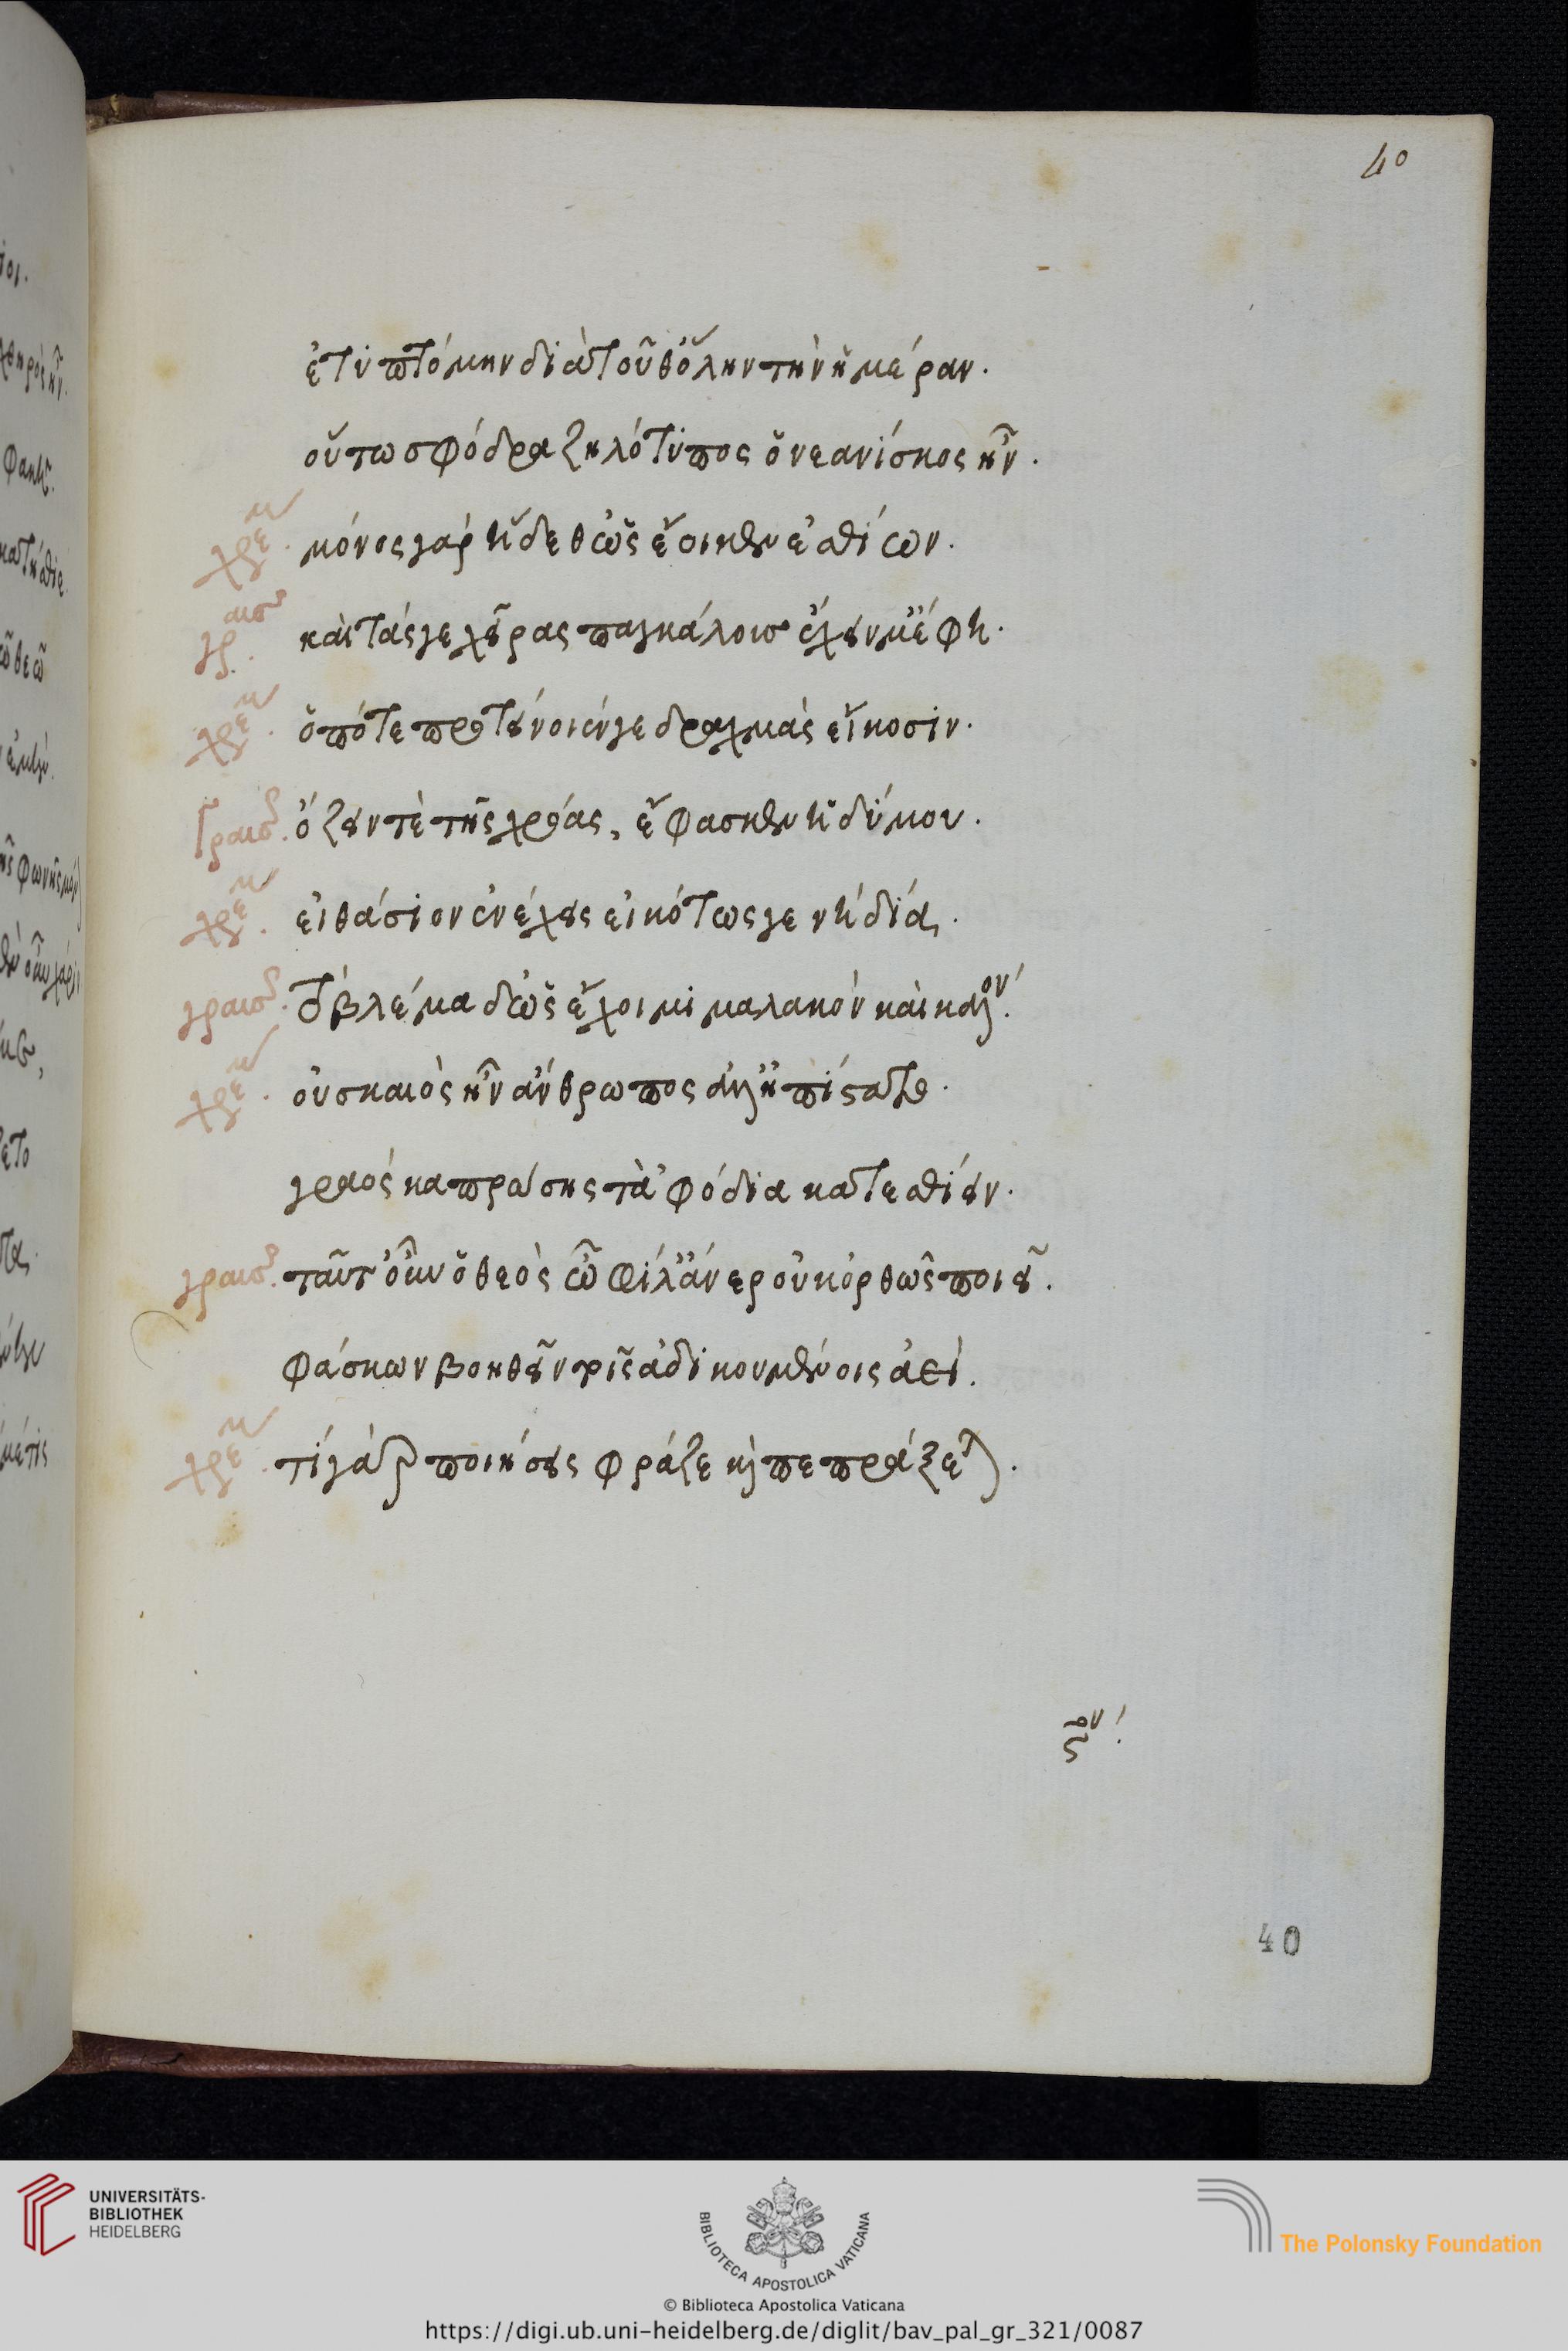 40
ἐτυπτόμην διὰ τοῦθ' ὅλην τὴν ἡμέραν.
οὕτω σφόδρα ζηλότυπος ὁ νεανίσκος ἦν.
χρεμ. μόνος γαρ ἥδεθ ὡς ἔοικεν ἐσθίων.
γρ. καὶ τάς γε χεῖρας παγκάλοισ ἔχειν μ' ἔφη.
χρεμ. ὁπότε προτείνοιέν γε δραχμὰς εἴκοσιν.
γραυσ. ὄζειν τὲ τῆς χρόας, ἔφασκεν ἡδύ μου.
χρεμ. εἰ θάσιον ἐνέχεις εἰκότως γε νὴ δία.
γραυσ. τὸ βλέμα δ' ὡς ἔχοιμι μαλακὸν καὶ καλόν.
χρεμ. οὐ σκαιὸς ἦν ἄνθρωπος ἀλλ' ἠπίστατο.
γραός καπρώσης τἀφόδια κατεσθίειν.
γραυσ. ταῦτ' οὖν ὁ θεὸς ὦ φίλ' ἄνερ οὐκ ὀρθῶς ποιεῖ.
φάσκων βοηθεῖν τοῖς ἀδικουμένοις ἀεί.
χρεμ. τί γὰρ ποιήσεις φράζε καὶ πεπράξεται.
40
UNIVERSITÄTS-
BIBLIOTHEK
HEIDELBERG
BIBLIOTECA APOSTOLICA VATICANA
The Polonsky Foundation
© Biblioteca Apostolica Vaticana
https://digi.ub.uni-heidelberg.de/diglit/bav_pal_gr_321/0087